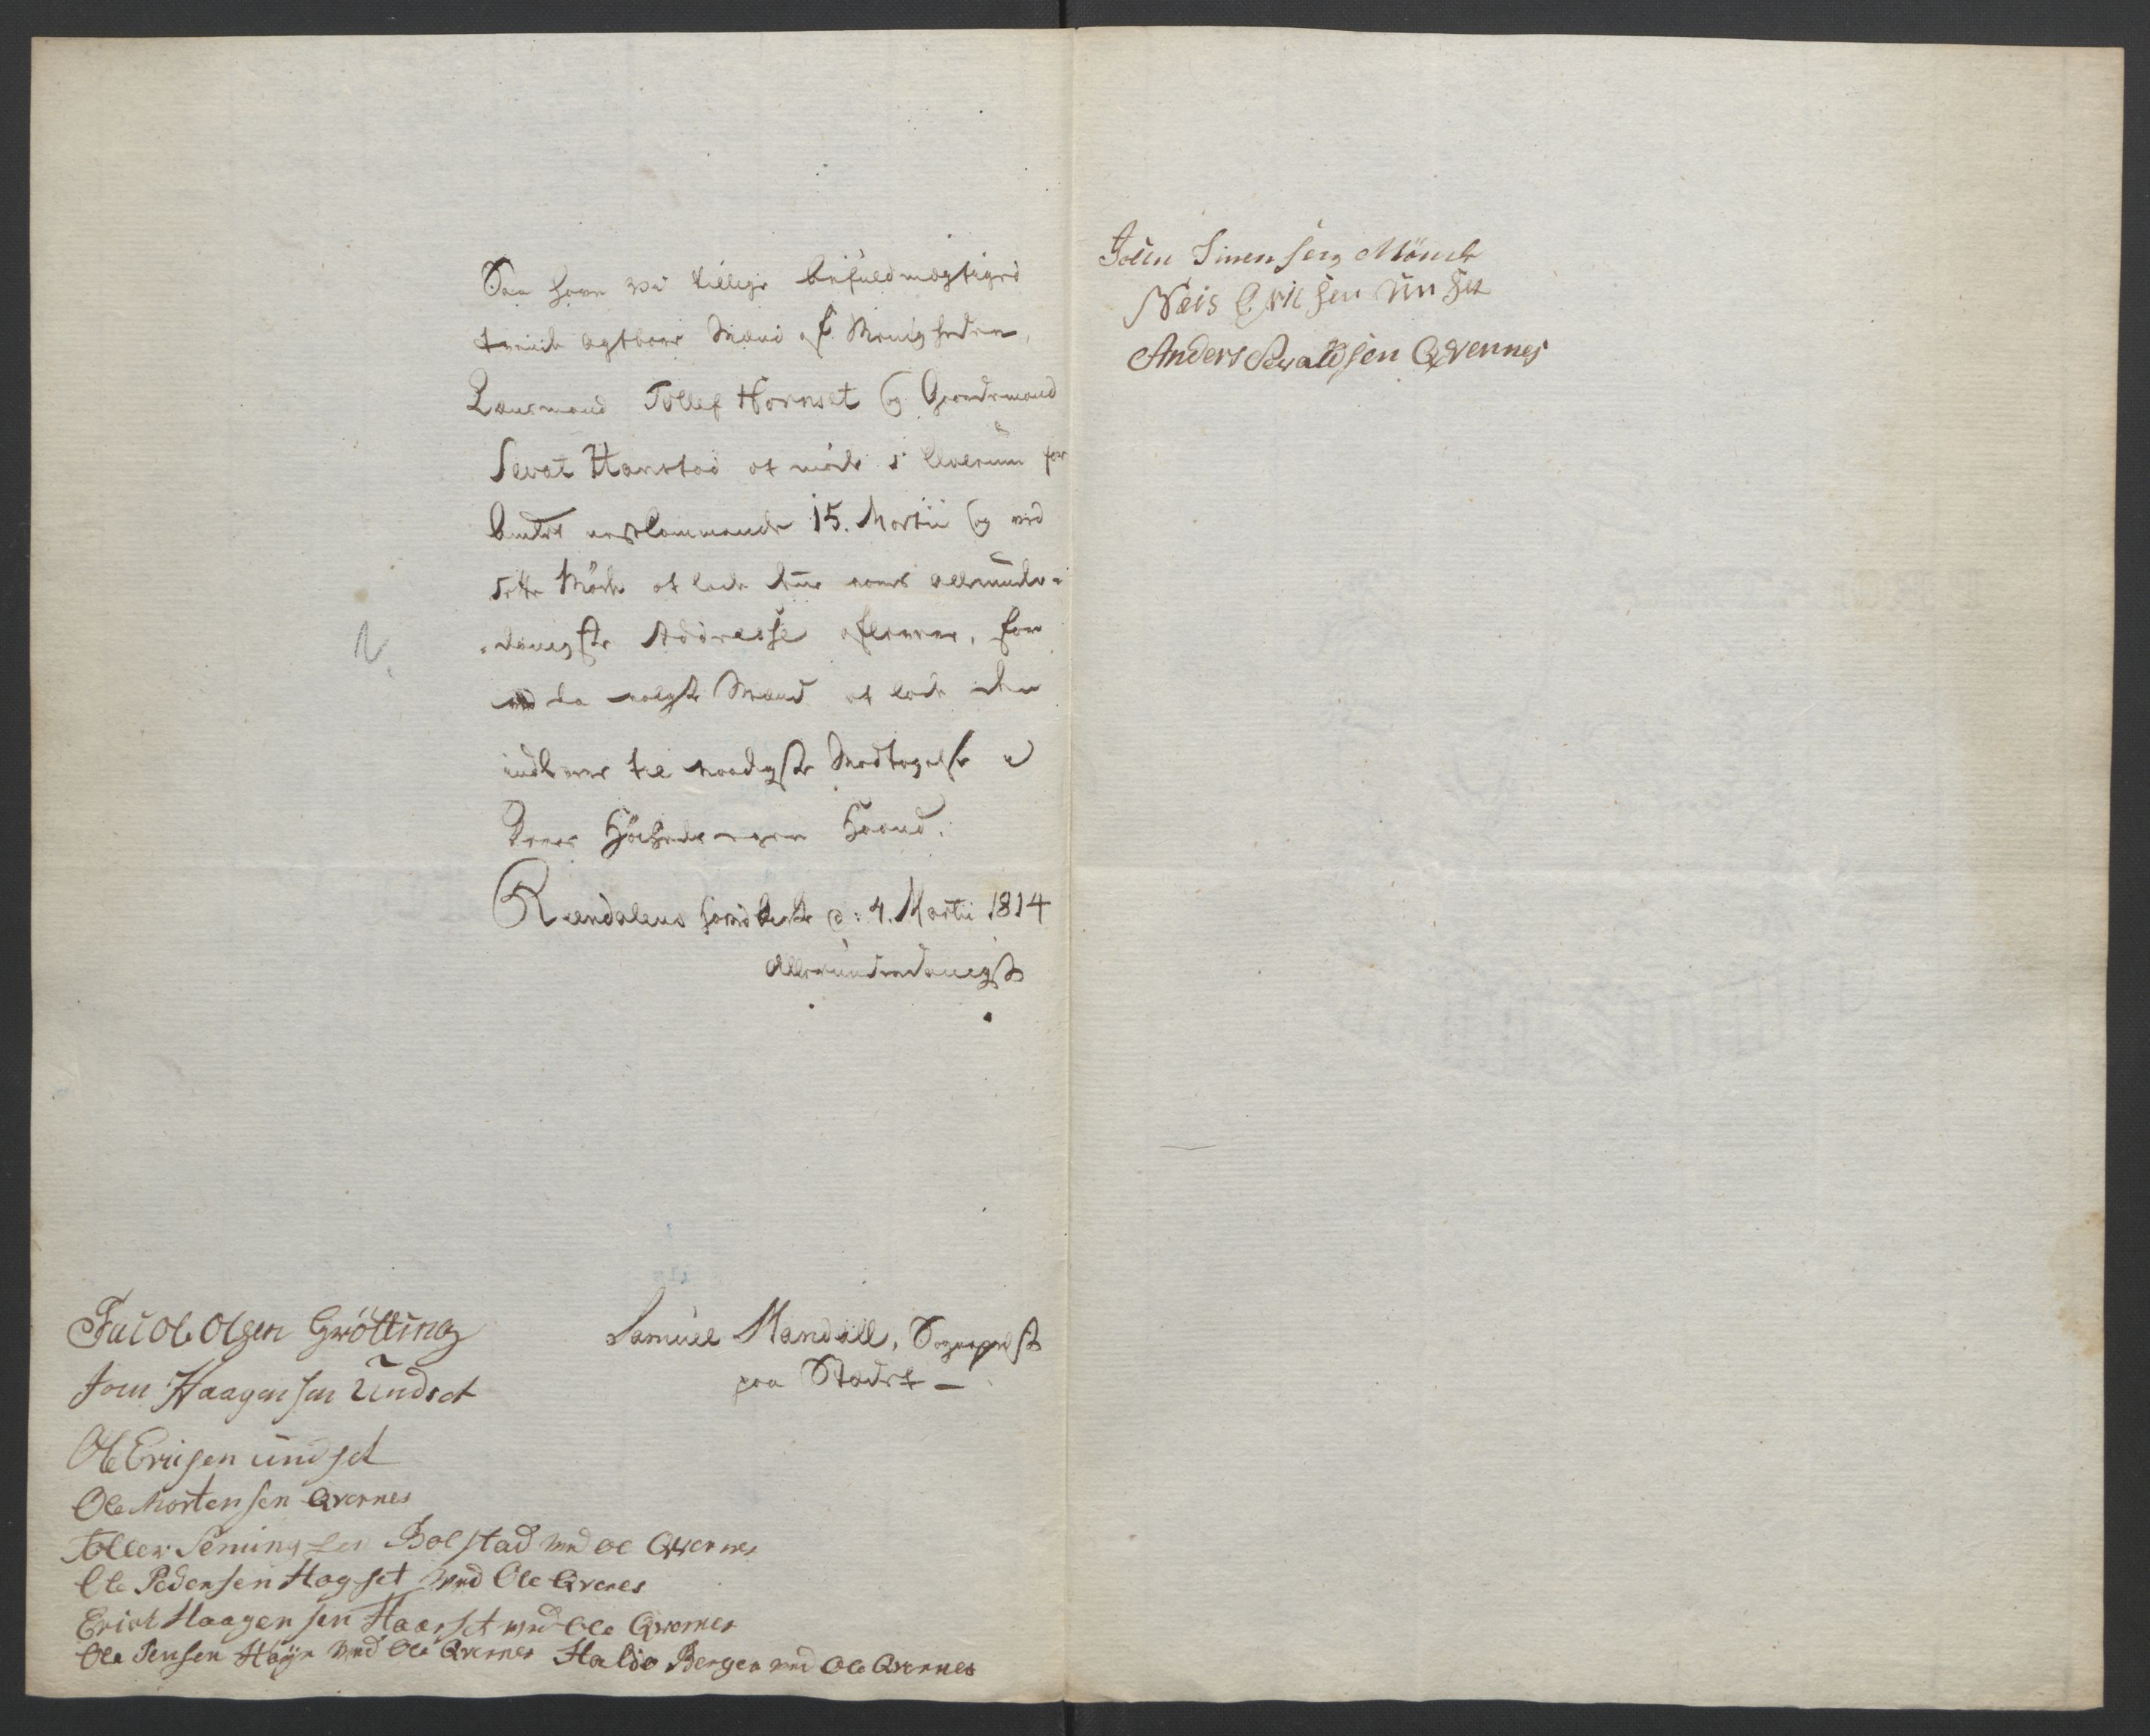 Saa have vi tillige befuldmægtiget
tvende agtbare Mænd af Menigheden,
Lensmand Tollef Hornset og Gaardmand
Sevat Hanstad at møde i Elverum for
Amtet nestkommende 15. Martii og ved
dette Møde at lade denne vores allerunder=
=danigste Addresse aflevere, for
ved da valgte Mænd at lade den
indlevere til naadigste Modtagelse i
Deres Høiheds egen Haand.
Reendalens hovedkirke d: 4. Martii 1814
Allerunderdanigst
Samuel Mandall, Sognepræst
paa Stædet –
Jacob Olsen Grötting
Jon Haagensen Undset
Ole Ericsen undset
Ole Mortensen Qvernes
Toller Semingsen Bolstad med ol Qvernes
Ole Pedersen Hagset med Ole Qvernes
Erich Haagensen Haarset med Ole Qvernes
Ole Jensen Høye med Ole Qvernes Haldo Berger med Ole Qvernes
John Simensen Mömb
Nels Erichsen Unset
Anders Sewaldsen Qvernnes